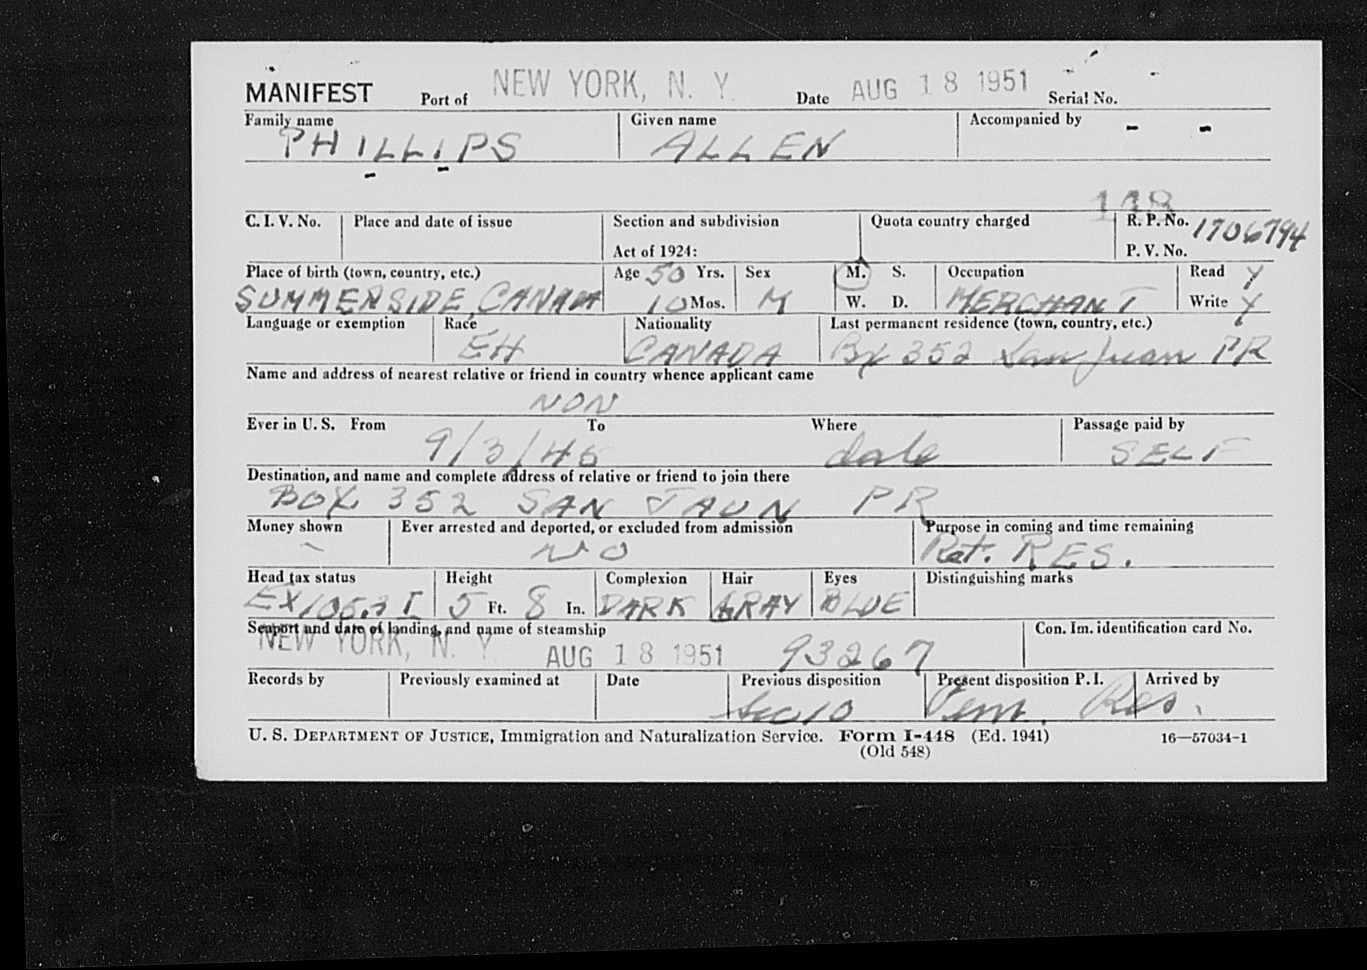 MANIFEST Port of NEW YORK, N. Y. Date AUG 18 1951 Serial No.
Family name Given name Accompanied by - -
PHILLIPS ALLEN
118
C. I. V. No. Place and date of issue Section and subdivision Quota country charged R. P. No. 1706794
Act of 1924: P. V. No.
Place of birth (town, country, etc.) Age 50 Yrs. Sex M. S. Occupation Read Y
SUMMERSIDE, CANADA 10 Mos. M W. D. MERCHANT Write Y
Language or exemption Race Nationality Last permanent residence (town, country, etc.)
EH CANADA Bx 352 San Juan PR
Name and address of nearest relative or friend in country whence applicant came
NON
Ever in U. S. From To Where Passage paid by
9/3/46 date SELF
Destination, and name and complete address of relative or friend to join there
BOX 352 SAN JAUN PR
Money shown Ever arrested and deported, or excluded from admission Purpose in coming and time remaining
- NO Ret. RES.
Head tax status Height Complexion Hair Eyes Distinguishing marks
5 Ft. 8 In. DARK GRAY BLUE
Seaport and date of landing, and name of steamship Con. Im. identification card No.
NEW YORK, N. Y. AUG 18 1951 93267
Records by Previously examined at Date Previous disposition Present disposition P. I. Arrived by
Sec 10 Perm. Res.
U. S. DEPARTMENT OF JUSTICE, Immigration and Naturalization Service. Form I-448 (Ed. 1941) 16—57034-1
(Old 548)